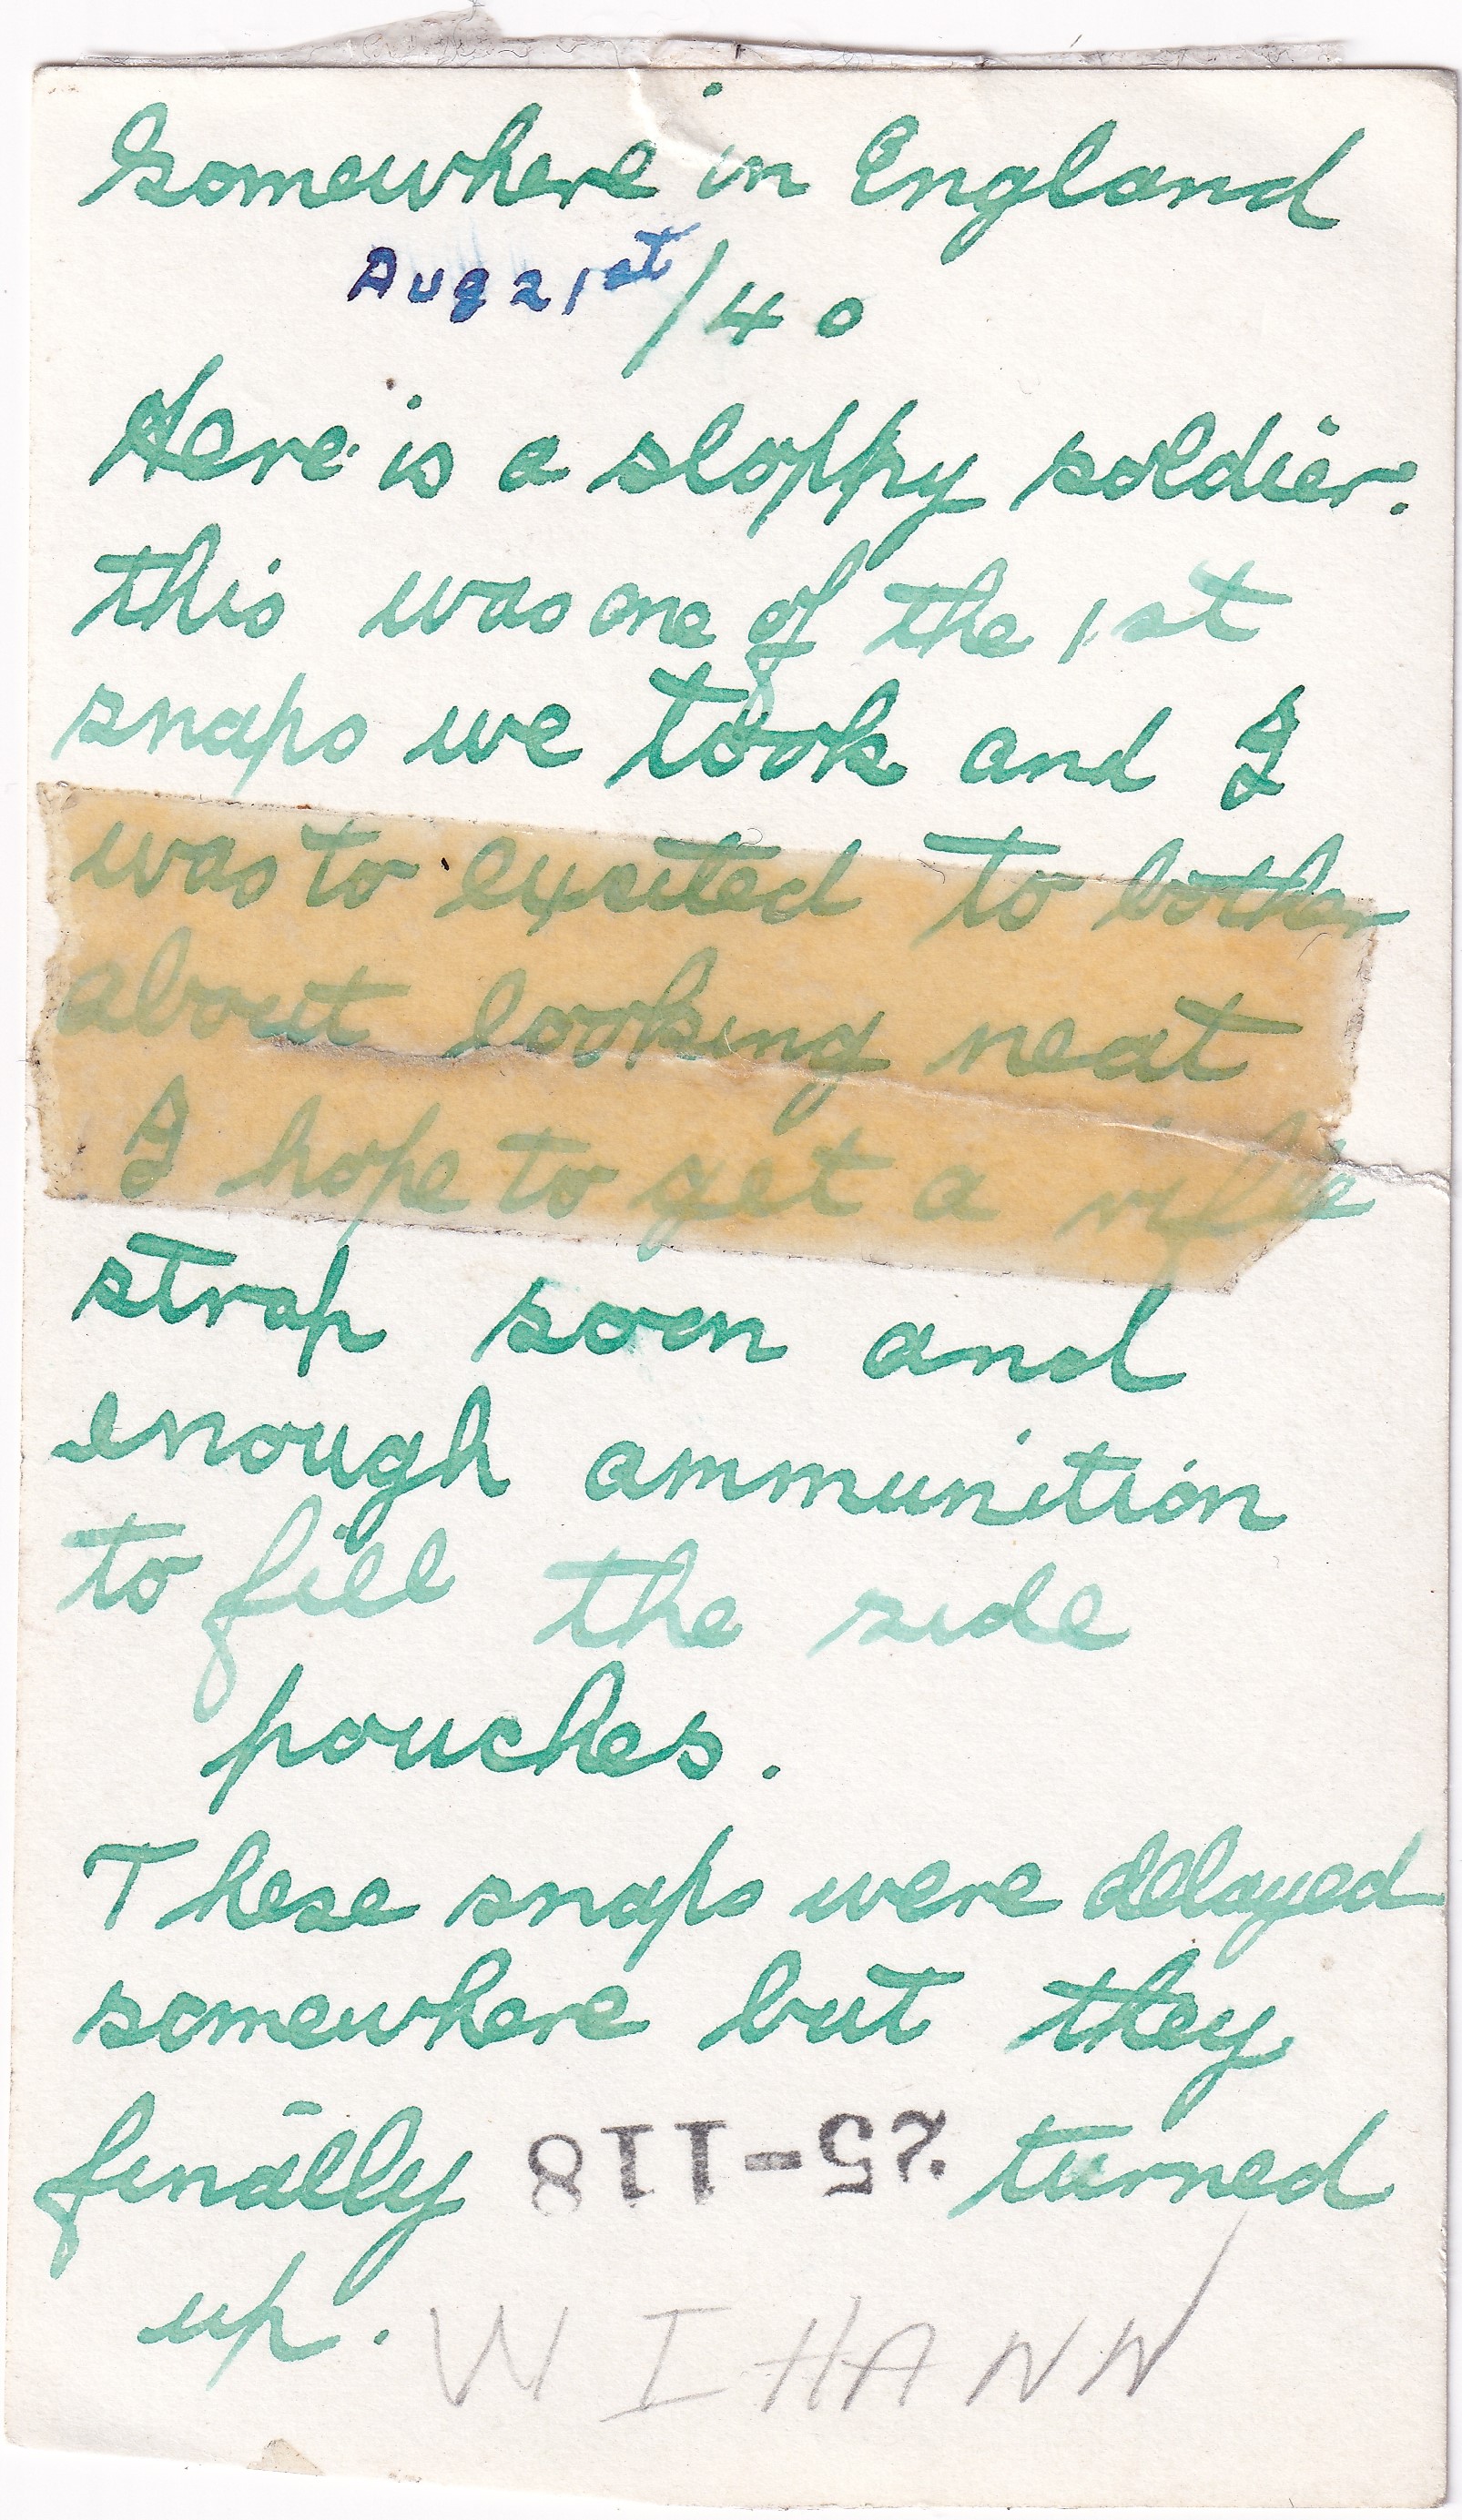 Somewhere in England
Aug 21st/40
Here is a sloppy soldier.
this was one of the 1st
snaps we took and I
was to exited to bother
about looking neat
I hope to get a rifle
strap soon and
enough ammunition
to fill the side
pouches.
These snaps were delayed
somewhere but they
finally 25-118 turned
up. W I HANN